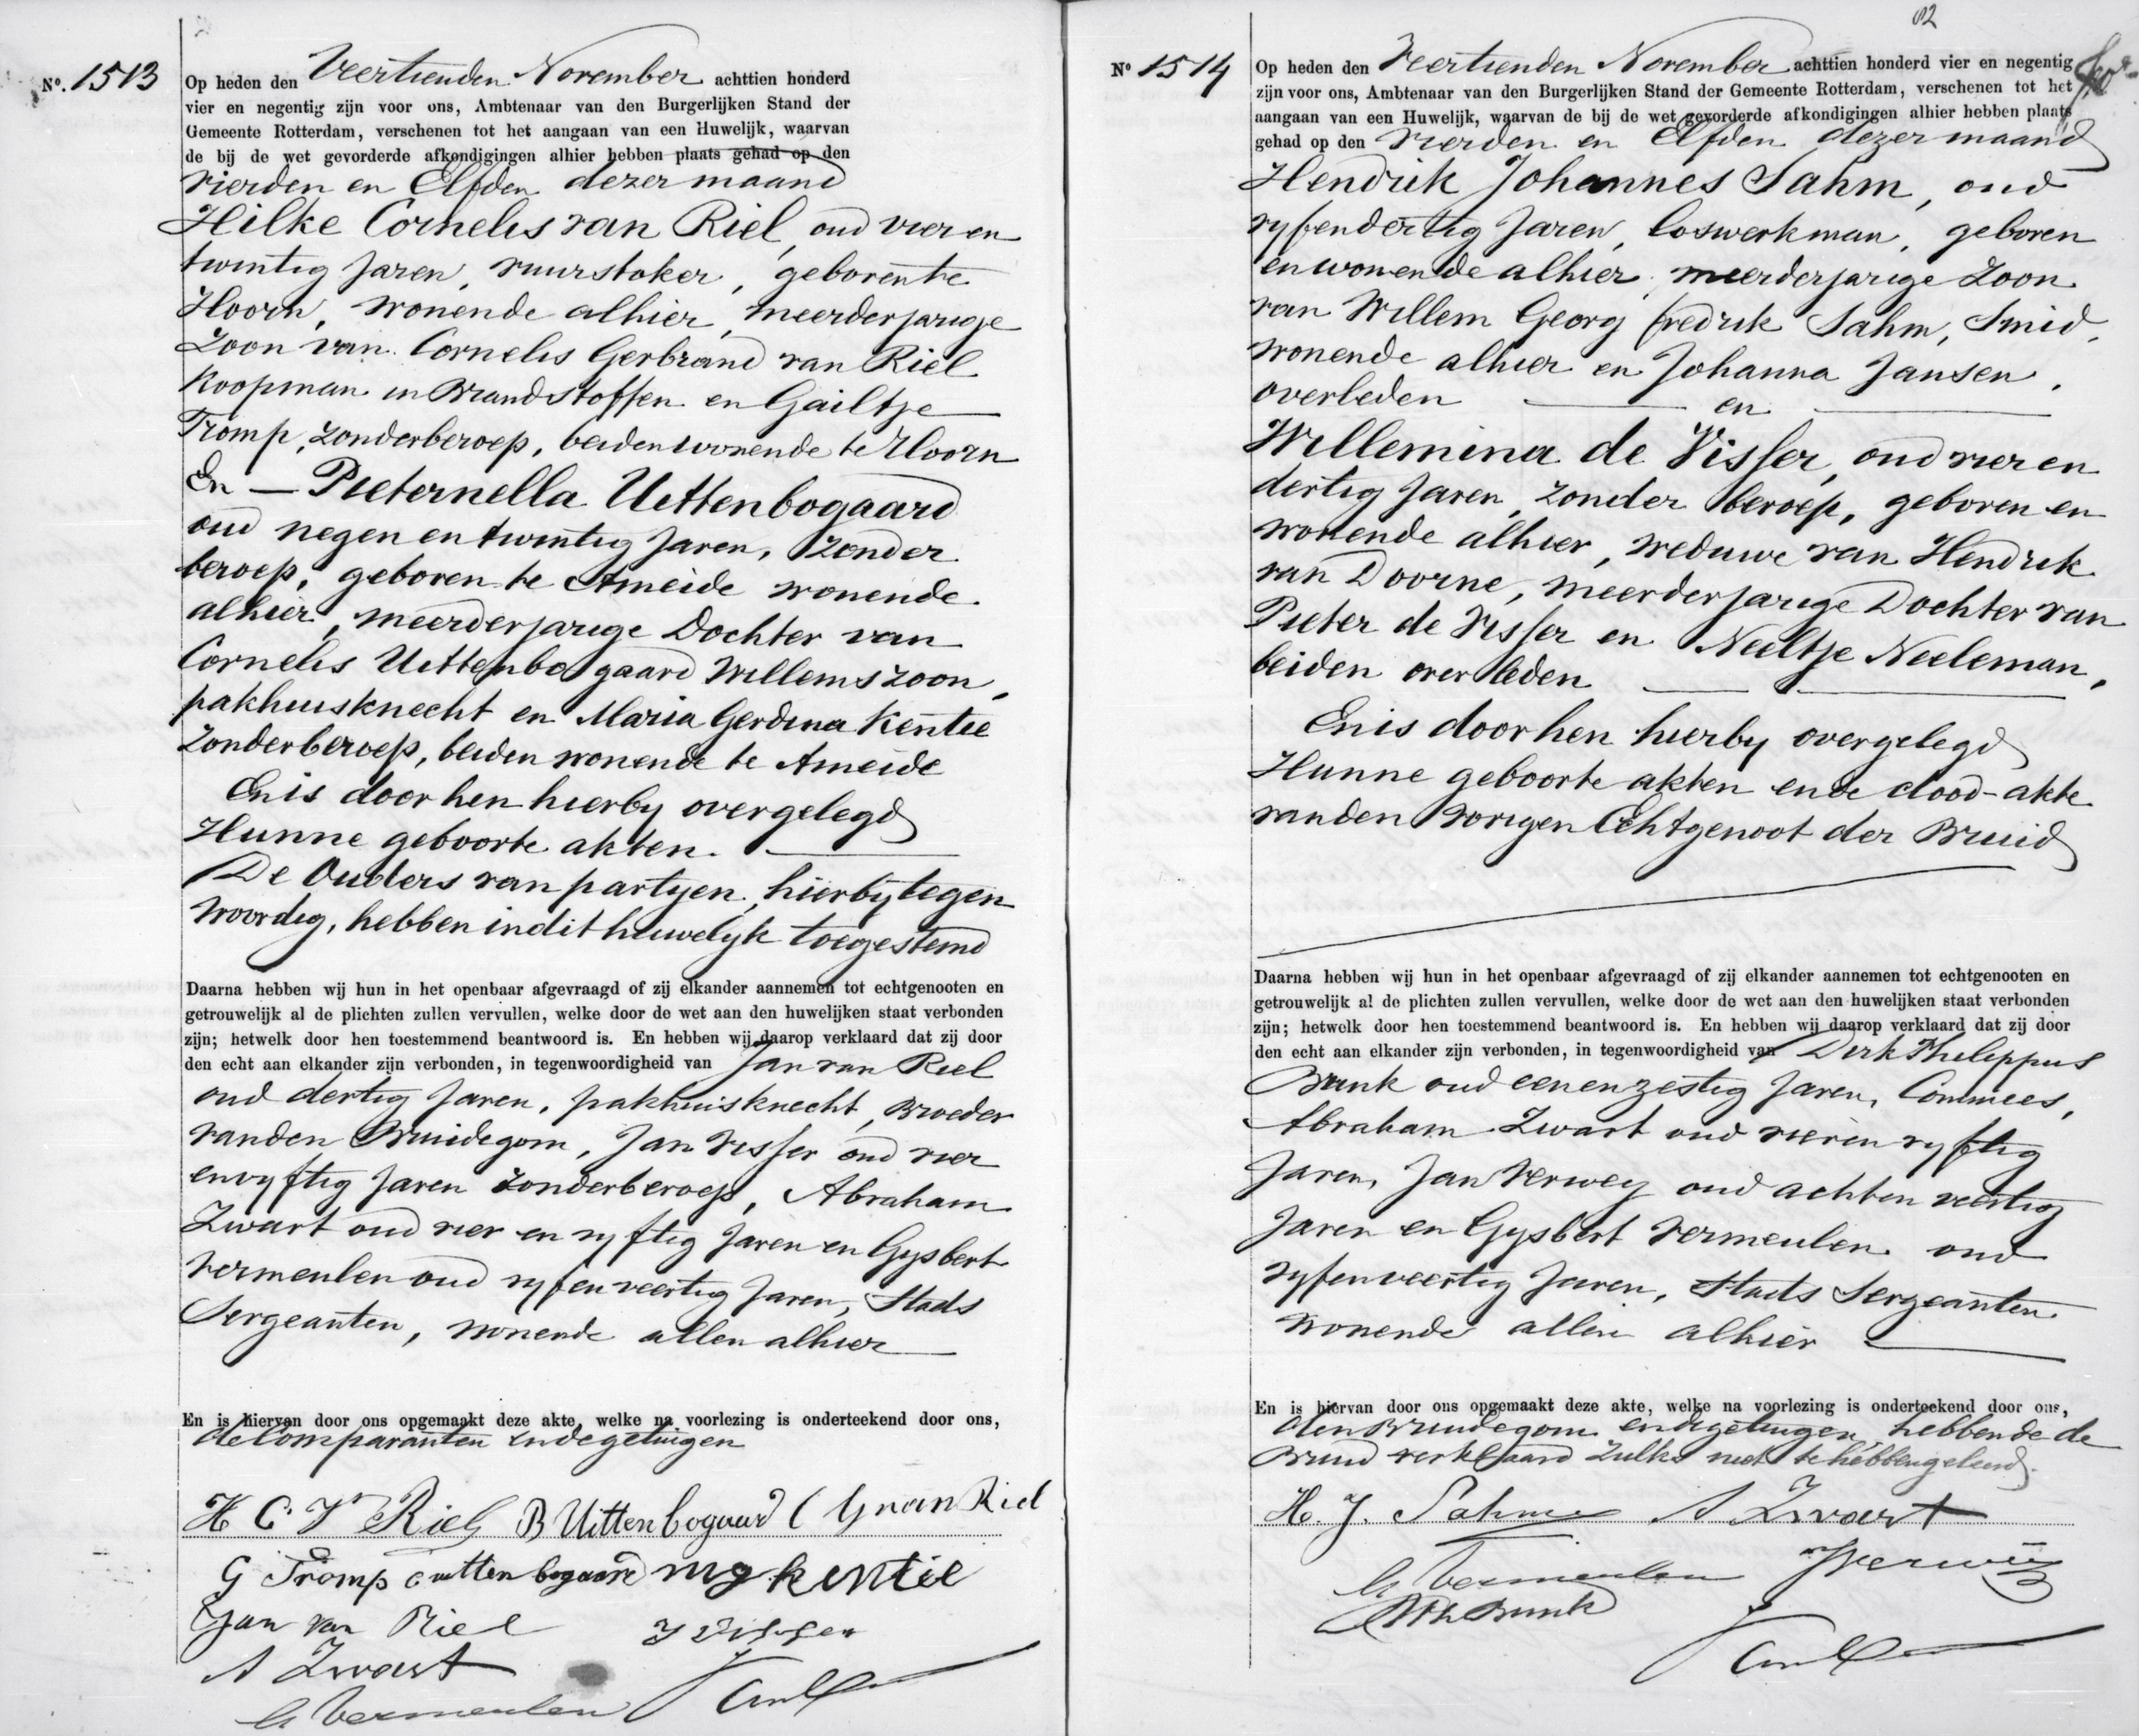 No. 1513
Op heden den Veertienden November achttien honderd
vier en negentig zijn voor ons, Ambtenaar van den Burgerlijken Stand der
Gemeente Rotterdam, verschenen tot het aangaan van een Huwelijk, waarvan
de bij de wet gevorderde afkondigingen alhier hebben plaats gehad op den
vierden en Elfden dezer maand
Hilke Cornelis van Riel, oud vier en
twintig Jaren, vuurstoker, geboren te
Hoorn, wonende alhier, meerderjarige
Zoon van Cornelis Gerbrand van Riel
Koopman in Brandstoffen en Gailtje
Tromp, zonder beroep, beiden wonende te Hoorn
En — Pieternella Uittenbogaard
oud negen en twintig Jaren, zonder
beroep, geboren te Ameide wonende
alhier, meerderjarige Dochter van
Cornelis Uittenbogaard Willemszoon,
pakhuisknecht en Maria Gerdina Kentie
Zonder beroep, beiden wonende te Ameide
En is door hen hierby overgelegd
Hunne geboorte akten.
De Ouders van partyen, hierby tegen
woordig, hebben in dit huwelyk toegestemd
Daarna hebben wij hun in het openbaar afgevraagd of zij elkander aannemen tot echtgenooten en
getrouwelijk al de plichten zullen vervullen, welke door de wet aan den huwelijken staat verbonden
zijn; hetwelk door hen toestemmend beantwoord is. En hebben wij daarop verklaard dat zij door
den echt aan elkander zijn verbonden, in tegenwoordigheid van Jan van Riel
oud dertig Jaren, pakhuisknecht, Broeder
van den Bruidegom, Jan Visser oud vier
en vyftig Jaren zonder beroep, Abraham
Zwart oud vier en vyftig Jaren en Gysbert
Vermeulen oud vyf en veertig Jaren, Stads
Sergeanten, wonende allen alhier
En is hiervan door ons opgemaakt deze akte, welke na voorlezing is onderteekend door ons,
de Comparanten en de getuigen
H C V Riel B Uittenbogaard C G van Riel
G Tromp C uittenbogaard mg kentie
Jan van Riel J Visser
A Zwart
G Vermeulen
82
No 1514
Op heden den Veertienden November achttien honderd vier en negentig
zijn voor ons, Ambtenaar van den Burgerlijken Stand der Gemeente Rotterdam, verschenen tot het
aangaan van een Huwelijk, waarvan de bij de wet gevorderde afkondigingen alhier hebben plaats
gehad op den vierden en Elfden dezer maand
Hendrik Johannes Sahm, oud
vyf en dertig Jaren, loswerkman, geboren
en wonende alhier, meerderjarige Zoon
van Willem Georg fredrik Sahm, Smid,
wonende alhier en Johanna Jansen,
overleden — en —
Willemina de Visser, oud vier en
dertig Jaren, zonder beroep, geboren en
wonende alhier, weduwe van Hendrik
van Doorne, meerderjarige Dochter van
Pieter de Visser en Neeltje Neeleman,
beiden overleden
En is door hen hierby overgelegd
Hunne geboorte akten en de dood-akte
van den vorigen Echtgenoot der Bruid
Daarna hebben wij hun in het openbaar afgevraagd of zij elkander aannemen tot echtgenooten en
getrouwelijk al de plichten zullen vervullen, welke door de wet aan den huwelijken staat verbonden
zijn; hetwelk door hen toestemmend beantwoord is. En hebben wij daarop verklaard dat zij door
den echt aan elkander zijn verbonden, in tegenwoordigheid van Dirk Philippus
Brunk oud een en zestig Jaren, Commies,
Abraham Zwart oud vier en vyftig
Jaren, Jan Verwey oud acht en veertig
Jaren en Gysbert Vermeulen oud
vyf en veertig Jaren, Stads Sergeanten
wonende allen alhier
En is hiervan door ons opgemaakt deze akte, welke na voorlezing is onderteekend door ons,
den Bruidegom en de getuigen, hebbende de
Bruid verklaard zulks niet te hebben geleerd.
H. J. Sahm A Zwart
G Vermeulen J Verwey
D Ph Brunk